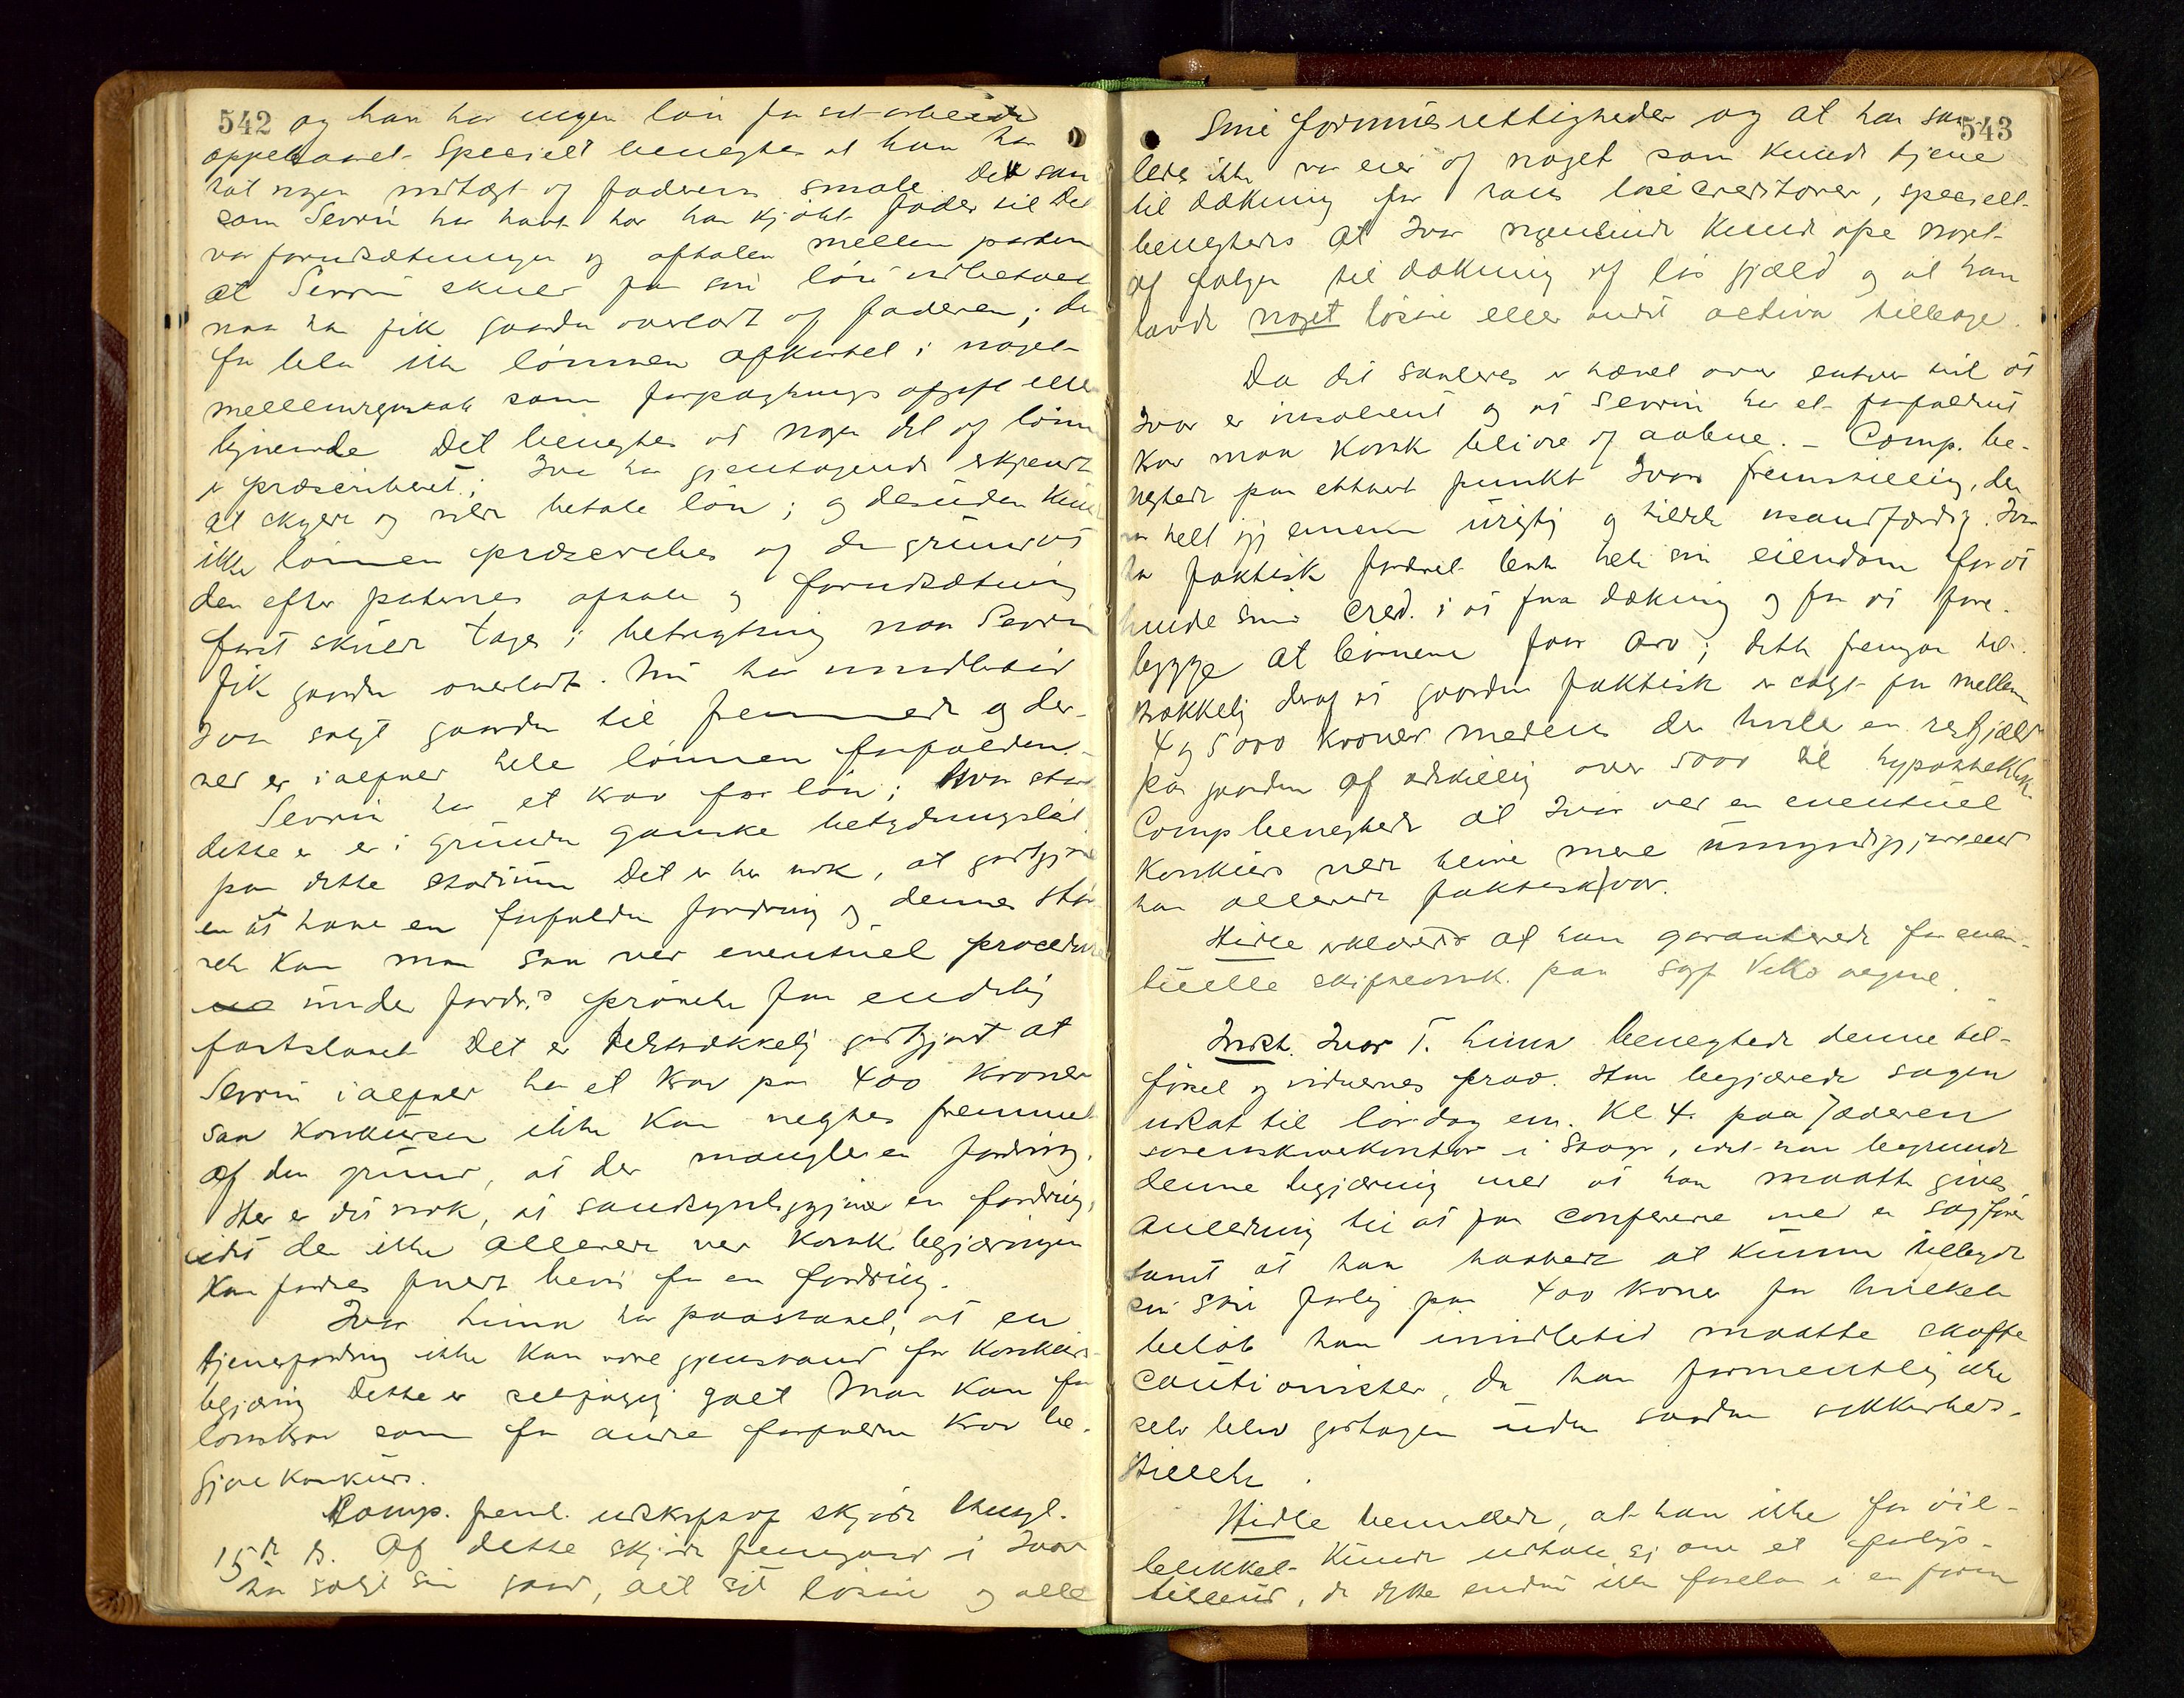 542 og han har ingen løn for sit arbeide
oppebaaret. Specielt benegtes at han har
hat nogen indtægt af faderens smale. Det saa
som Sevrin har havt har han kjøbt foder til Det
var forudsætningen og aftalen mellem parterne
at Sevrin skulde faa sin løn udbetalt
naar han fik gaarden overladt af faderen; der
for blev ikke lønnen afkortet i noget
mellemregnskab som forpagtnings afgift eller
lignende Det benegtes at nogen del af lønnen
er præscriberet; Ivar har gjentagende erkjendt
at skylde og ville betale løn; og desuden kunde
ikke lønnen præscriberes af den grund at
den efter parternes aftale og forudsætning
først skulde tages i betragtning naar Sevrin
fik gaarden overladt. Nu har imidlertid
Ivar solgt gaarden til fremmede og der-
ved er ialfald hele lønnen forfalden.
Sevrin har et krav for løn; hvor stort
dette er er i grunden ganske betydningsløst
paa dette stadium Det er her nok, at godtgjøre
en at have en forfalden fordring og dennes stør
relse kan man saa ved eventuel procedure
under fordr.s prøvelse faa endelig
fastslaaet Det er tilstrækkelig godtgjort at
Sevrin ialfald har et krav paa 400 kroner
saa konkursen ikke kan negtes fremmet
af den grund, at der mangler en fordring.
Her er det nok, at sandsynliggjøre en fordring,
idet der ikke allerede ved konk. begjæringen
kan fordres fuldt bevis for en fordring.
Ivar Lima har paastaaet, at en
tjenerfordring ikke kan være gjenstand for konkurs-
begjæring Dette er selvfølgelig galt Man kan for
lønskrav som for andre forfaldne krav be-
gjære konkurs.
Comp. freml. udskrift af skjøde thingl.
15de ds. Af dette skjøde fremgaar at Ivar
har solgt sin gaard, alt sit løsøre og alle
543
Sine formuesrettigheder og at han saa-
ledes ikke var eier af noget som kunde tjene
til dækning for hans løse creditorer, specielt
benegtedes at Ivar nogensinde kunde afse noget
af følgen til dækning af løs gjæld og at han
havde noget løsøre eller andet activa tilbage.
Da det saaledes er hævet over enhver tvil at
Ivar er insolvent og at Sevrin har et forfaldent
krav maa konk. blive at aabne. - Comp. be-
negtede paa ethvert punkt Ivars fremstilling, der
var helt igjennem urigtig og tildels usandfærdig. Ivar
har faktisk foræret bort hele sin eiendom for at
hindre sine cred. i at faa dækning og for at fore-
bygge at børnene faar arv; dette fremgaar til-
strækkelig deraf at gaarden faktisk er solgt for mellem
4 og 5000 kroner medens der hviler en restgjæld
paa gaarden af adskillig over 5000 til hypothekbk.
Comp benegtede at Ivar ved en eventuel
konkurs vilde blive mere umyndiggjort end
han allerede faktisk var.
Hidle erklærede at han garanterede for even-
tuelle skifteomk. paa sagf Vetti's vegne.
Inst. Ivar T. Lima benegtede denne til-
førsel og vidnernes prov. Han begjærede sagen
udsat til lørdag em. Kl 4. paa Jæderens
sorenskriverkontor i Stavgr., idet han begrundede
denne begjæring med at han maatte gives
anledning til at faa conferere med en sagfører
samt at han haabede at kunne tilbyde
sin søn forlig paa 400 kroner for hvilket
beløb han imidlertid maatte skaffe
cautionister, da han formentlig ikke
selv blev godtagen uden saadan sikkerheds-
stillelse.
Hidle bemærkede, at han ikke for øie-
blikket kunde udtale sig om et forligs-
tilbud, da dette endnu ikke forelaa i en form